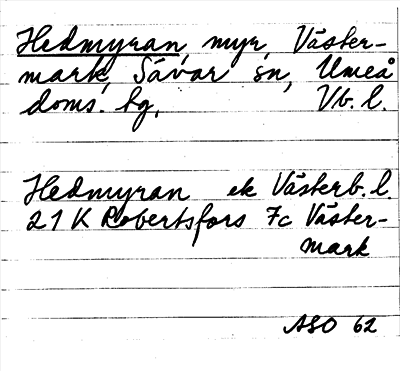 Hedmyran, myr, Väster-
mark, Sävar sn, Umeå
doms. tg, Vb. l.
Hedmyran ek Västerb. l.
21 K Robertsfors 7c Väster-
mark
ASO 62